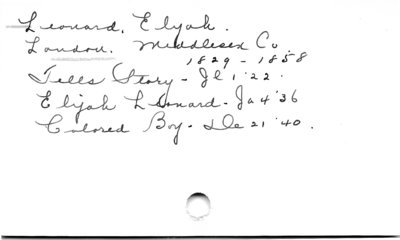 Leonard, Elijah.
London. Middlesex Co.
1829 - 1858
Tells Story - Jl 1 '22.
Elijah Leonard - Ja 4 '36
Colored Boy - De 21 '40.